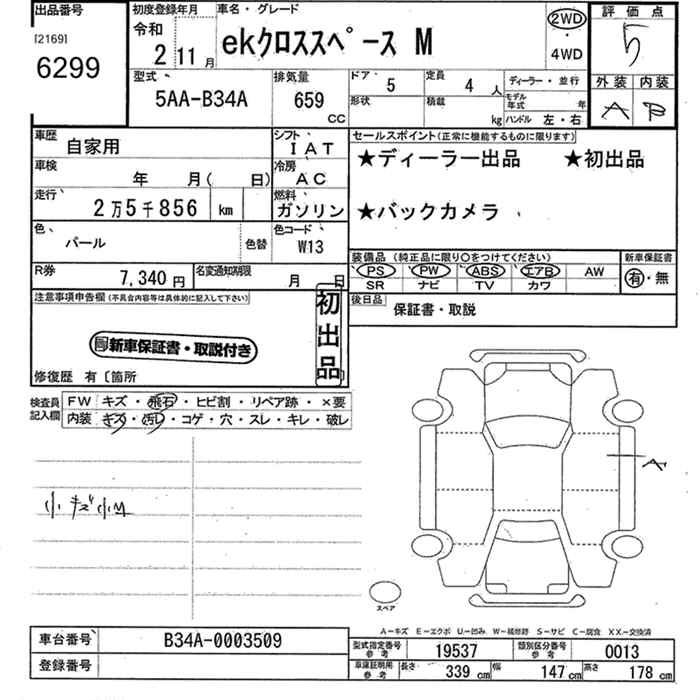 出品番号 初度登録年月 車名・グレード 評価点
[2169] 6299
令和 2 11月 ekクロススペース M 2WD・4WD 5
型式 5AA-B34A 排気量 659 CC ドア 5 定員 4 人 ディーラー・並行 外装 内装
形状 積載 kg モデル年式 年 ハンドル 左・右 A B
車歴 自家用 シフト IAT セールスポイント(正常に機能するものに限ります)
車検 年 月( 日) 冷房 AC ★ディーラー出品 ★初出品
走行 2万5千856 km 燃料 ガソリン ★バックカメラ
色 パール 色替 色コード W13
装備品(純正品に限り○をつけてください) 新車保証書
R券 7,340円 名変通知期限 月 日 PS PW ABS エアB AW 有・無
SR ナビ TV カワ
注意事項申告欄(不具合内容等は具体的に記入して下さい) 初出品 後日品 保証書・取説
新車保証書・取説付き
修復歴 有〔箇所
検査員記入欄 FW キズ・飛石・ヒビ割・リペア跡・×要
内装 キズ・汚レ・コゲ・穴・スレ・キレ・破レ
小キズ小凹
A
スペア
A-キズ E-エクボ U-凹み W-補修跡 S-サビ C-腐食 XX-交換済
車台番号 B34A-0003509 型式指定番号 参考 19537 類別区分番号 参考 0013
登録番号 車庫証明用 参考 長さ 339cm 幅 147cm 高さ 178cm